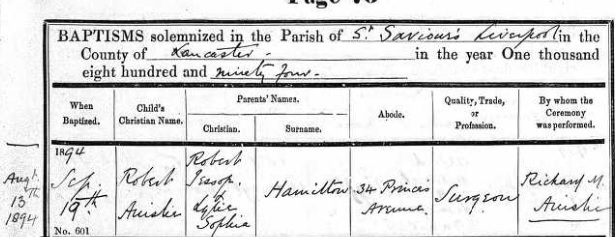 BAPTISMS solemnized in the Parish of St. Saviour's Liverpool in the
County of Lancaster in the year One thousand
eight hundred and ninety four
When Baptized. Child's Christian Name. Parents' Names. Abode. Quality, Trade, or Profession. By whom the Ceremony was performed.
Christian. Surname.
1894
Sep. 19th
Robert Ainslie
Robert Jessop & Sophia
Hamilton
34 Princes Avenue
Surgeon
Richard M. Ainslie
No. 601
Augt. 13th 1894